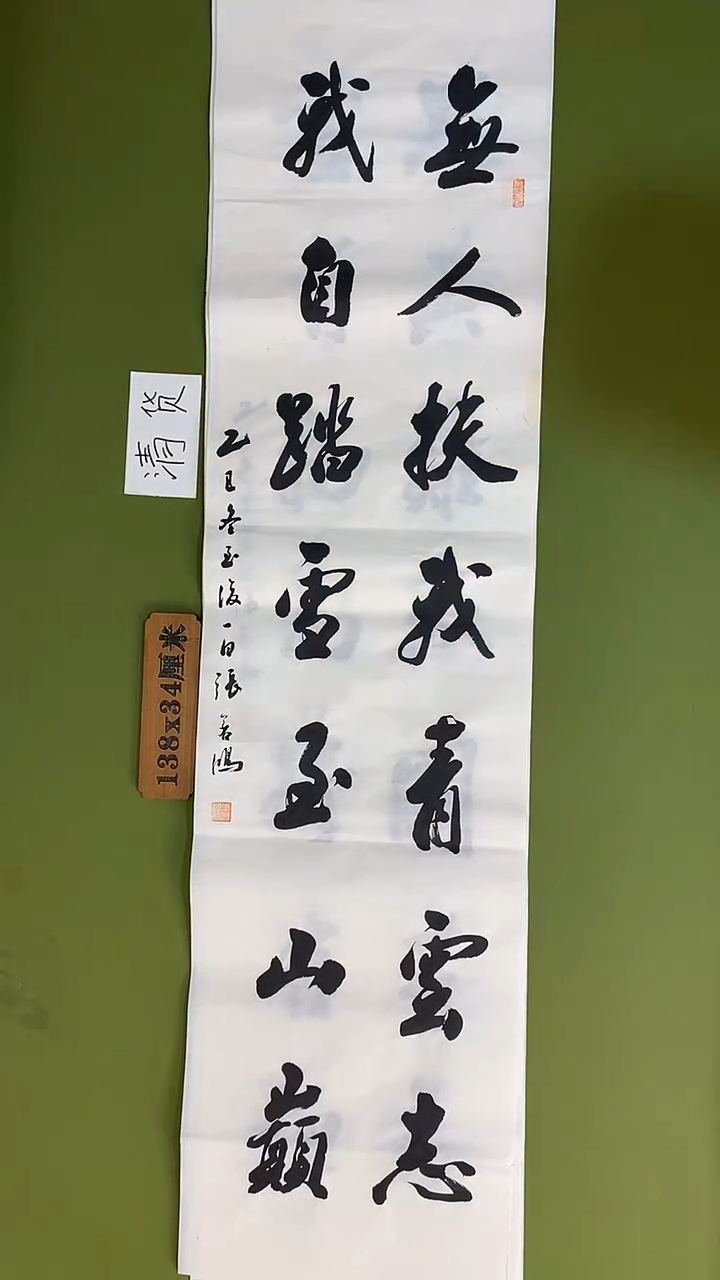 無人扶我青雲志
我自踏雪至山巔
乙巳冬至後一日張若鴻
清货
138x34厘米